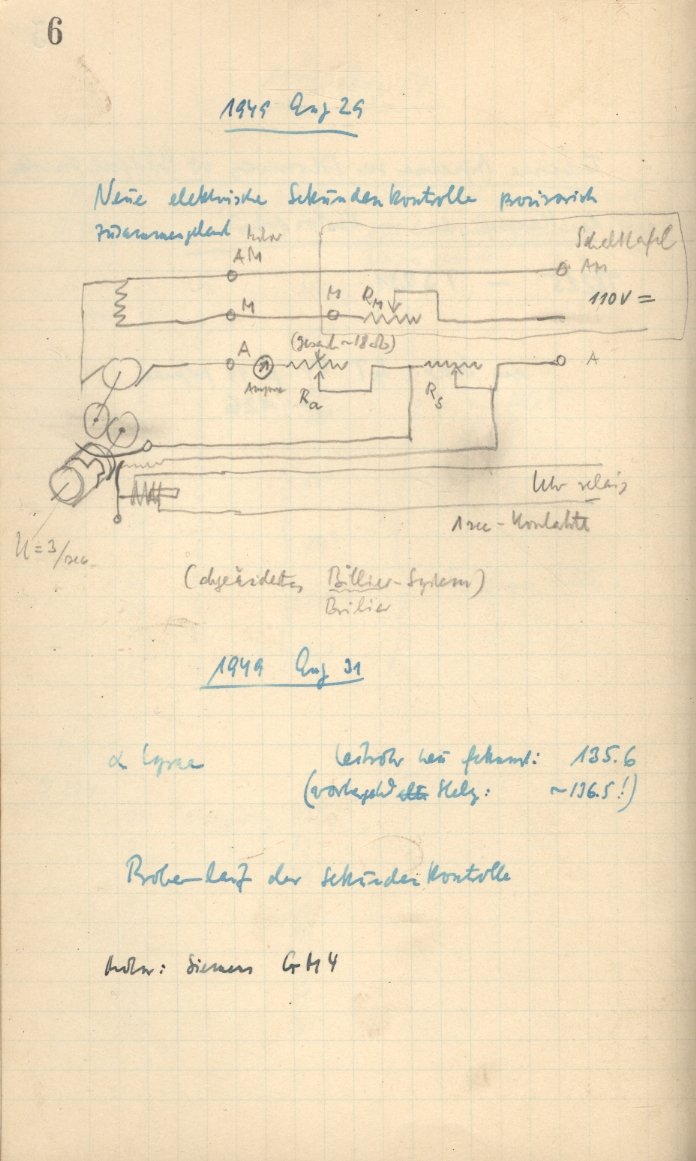 6
1949 Aug 29
Neue elektrische Sekundenkontrolle provisorisch
zusammengebaut
Motor
Schalttafel
AM
AM
M
M
R_M
110V =
(gesamt ~18 Ω)
A
A
Ampere
R_a
R_s
Uhrrelais
1 sec-Kontakte
U = 3/sec
(abgeändertes Billier-System)
Brilier
1949 Aug 31
α Lyrae Leitrohr neu fokuss.: 135.6
(vorhergehd Stellg: ~136.5!)
Probelauf der Sekundenkontrolle
Motor: Siemens GM4